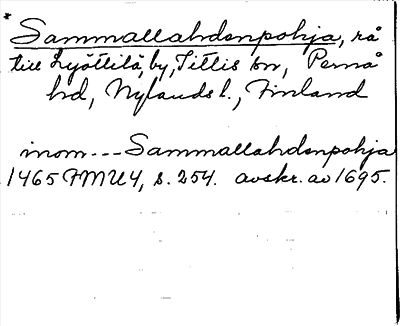 * Sammallahdenpohja, rå
till Lyöttilä, by, Ittis sn, Pernå
hd, Nylands l., Finland
inom --- Sammallahdenpohja
1465 FMU4, s. 254. avskr. av 1695.